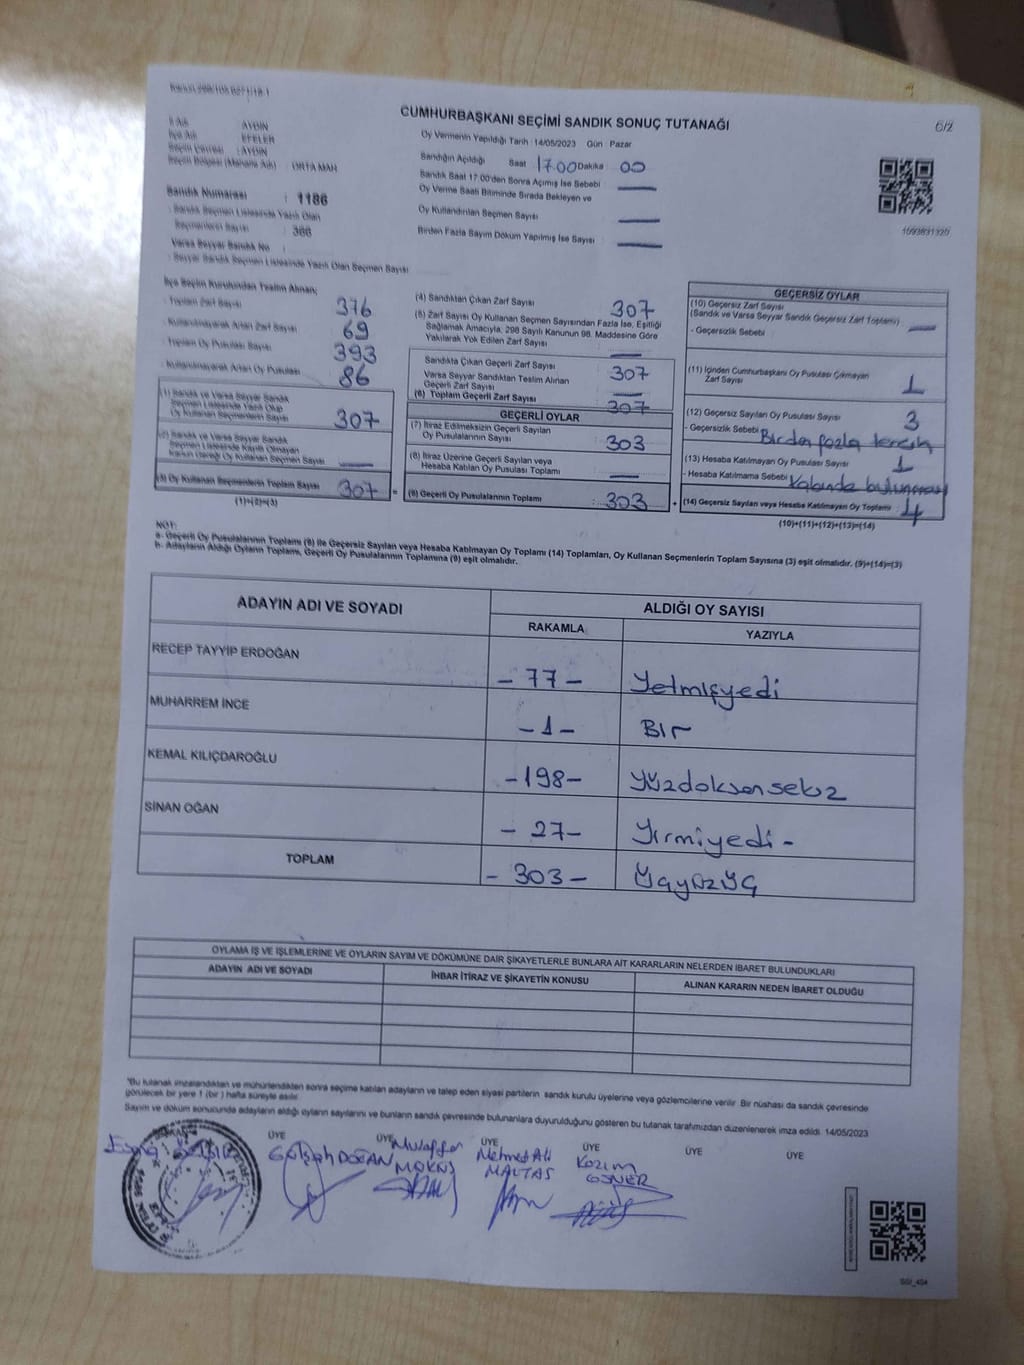 CUMHURBAŞKANI SEÇİMİ SANDIK SONUÇ TUTANAĞI
6/2
İl Adı : AYDIN
İlçe Adı : EFELER
Seçim Çevresi : AYDIN
Seçim Bölgesi (Mahalle Adı) : ORTA MAH
Sandık Numarası : 1186
Sandık Seçmen Listesinde Yazılı Olan
Seçmenlerin Sayısı : 366
Varsa Seyyar Sandık No :
Seyyar Sandık Seçmen Listesinde Yazılı Olan Seçmen Sayısı
Oy Vermenin Yapıldığı Tarih : 14/05/2023 Gün Pazar
Sandığın Açıldığı Saat 17.00 Dakika : 00
Sandık Saat 17.00'den Sonra Açılmış İse Sebebi : —
Oy Verme Saati Bitiminde Sırada Bekleyen ve
Oy Kullandırılan Seçmen Sayısı : —
Birden Fazla Sayım Döküm Yapılmış İse Sayısı : —
1093831320
İlçe Seçim Kurulundan Teslim Alınan;
- Toplam Zarf Sayısı : 376
- Kullanılmayarak Artan Zarf Sayısı : 69
- Toplam Oy Pusulası Sayısı : 393
- Kullanılmayarak Artan Oy Pusulası : 86
(1) Sandık ve Varsa Seyyar Sandık
Seçmen Listesinde Yazılı Olup
Oy Kullanan Seçmenlerin Sayısı : 307
(2) Sandık ve Varsa Seyyar Sandık
Seçmen Listesinde Kayıtlı Olmayan
Kanun Gereği Oy Kullanan Seçmen Sayısı : —
(3) Oy Kullanan Seçmenlerin Toplam Sayısı : 307
(1)+(2)=(3)
(4) Sandıktan Çıkan Zarf Sayısı : 307
(5) Zarf Sayısı Oy Kullanan Seçmen Sayısından Fazla İse, Eşitliği
Sağlamak Amacıyla, 298 Sayılı Kanunun 98. Maddesine Göre
Yakılarak Yok Edilen Zarf Sayısı : —
Sandıkta Çıkan Geçerli Zarf Sayısı : 307
Varsa Seyyar Sandıktan Teslim Alınan
Geçerli Zarf Sayısı : —
(6) Toplam Geçerli Zarf Sayısı : 307
GEÇERLİ OYLAR
(7) İtiraz Edilmeksizin Geçerli Sayılan
Oy Pusulalarının Sayısı : 303
(8) İtiraz Üzerine Geçerli Sayılan veya
Hesaba Katılan Oy Pusulası Toplamı : —
(9) Geçerli Oy Pusulalarının Toplamı : 303
GEÇERSİZ OYLAR
(10) Geçersiz Zarf Sayısı
(Sandık ve Varsa Seyyar Sandık Geçersiz Zarf Toplamı) : —
- Geçersizlik Sebebi :
(11) İçinden Cumhurbaşkanı Oy Pusulası Çıkmayan
Zarf Sayısı : 1
(12) Geçersiz Sayılan Oy Pusulası Sayısı : 3
- Geçersizlik Sebebi : Birden fazla tercih
(13) Hesaba Katılmayan Oy Pusulası Sayısı : 1
- Hesaba Katılmama Sebebi :
(14) Geçersiz Sayılan veya Hesaba Katılmayan Oy Toplamı : 4
(10)+(11)+(12)+(13)=(14)
NOT:
a- Geçerli Oy Pusulalarının Toplamı (9) ile Geçersiz Sayılan veya Hesaba Katılmayan Oy Toplamı (14) Toplamları, Oy Kullanan Seçmenlerin Toplam Sayısına (3) eşit olmalıdır. (9)+(14)=(3)
b- Adayların Aldığı Oyların Toplamı, Geçerli Oy Pusulalarının Toplamına (9) eşit olmalıdır.
ADAYIN ADI VE SOYADI ALDIĞI OY SAYISI
RAKAMLA YAZIYLA
RECEP TAYYİP ERDOĞAN - 77 - Yetmişyedi
MUHARREM İNCE - 1 - BIr
KEMAL KILIÇDAROĞLU - 198 - Yüzdoksansekiz
SİNAN OĞAN - 27 - Yirmiyedi -
TOPLAM - 303 - Üçyüzüç
OYLAMA İŞ VE İŞLEMLERİNE VE OYLARIN SAYIM VE DÖKÜMÜNE DAİR ŞİKAYETLERLE BUNLARA AİT KARARLARIN NELERDEN İBARET BULUNDUKLARI
ADAYIN ADI VE SOYADI İHBAR İTİRAZ VE ŞİKAYETİN KONUSU ALINAN KARARIN NEDEN İBARET OLDUĞU
"Bu tutanak imzalandıktan ve mühürlendikten sonra seçime katılan adayların ve talep eden siyasi partilerin sandık kurulu üyelerine veya gözlemcilerine verilir. Bir nüshası da sandık çevresinde
görülecek bir yere 1 (bir) hafta süreyle asılır.
Sayım ve döküm sonucunda adayların aldığı oyların sayılarını ve bunların sandık çevresinde bulunanlara duyurulduğunu gösteren bu tutanak tarafımızdan düzenlenerek imza edildi. 14/05/2023
ÜYE ÜYE ÜYE ÜYE ÜYE ÜYE
Gülşah DOĞAN
Muzaffer
Mehmet Ali
MALTAŞ
Kazım